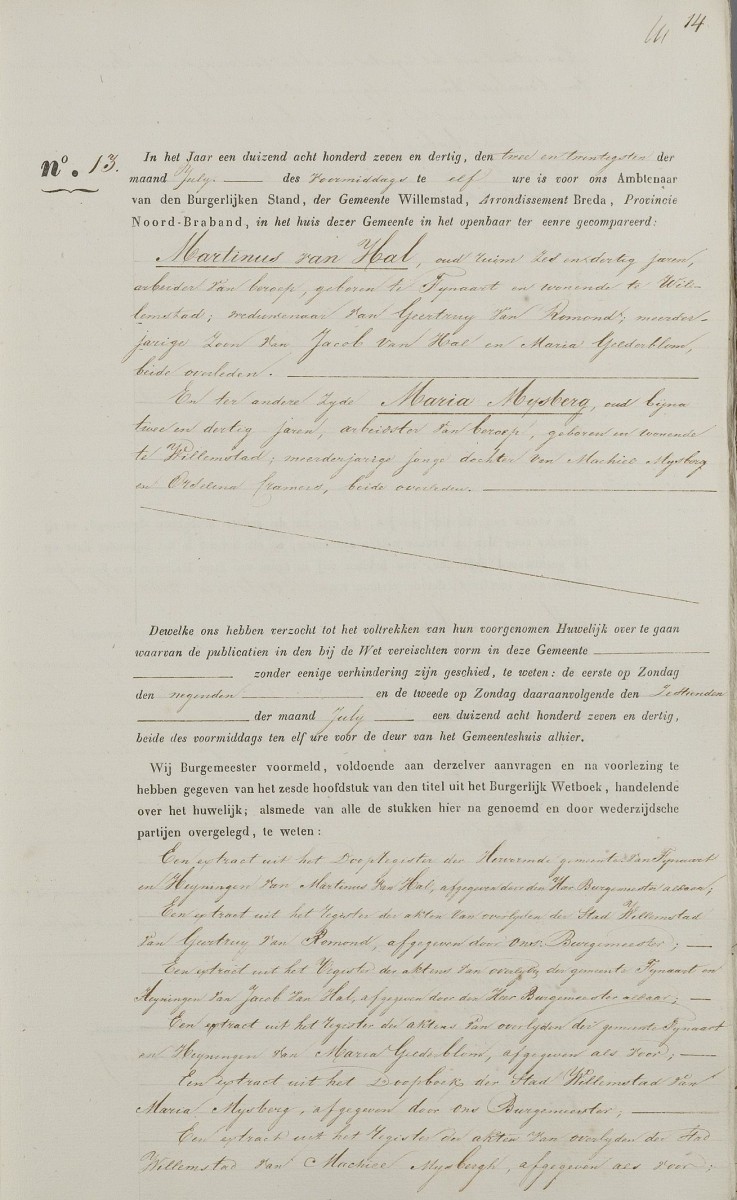 14
nº. 13.
In het Jaar een duizend acht honderd zeven en dertig, den twee en twentigsten der
maand July. des voormiddags te elf ure is voor ons Ambtenaar
van den Burgerlijken Stand, der Gemeente Willemstad, Arrondissement Breda, Provincie
Noord-Braband, in het huis dezer Gemeente in het openbaar ter eenre gecompareerd:
Martinus van Hal, oud ruim zes en dertig jaren,
arbeider van beroep, geboren te Fynaart en wonende te Wil-
lemstad; weduwenaar van Geertruy van Romond; meerder-
jarige zoon van Jacob van Hal en Maria Gelderblom,
beide overleden.
En ter andere zyde Maria Mysberg, oud byna
twee en dertig jaren, arbeidster van beroep, geboren en wonende
te Willemstad; meerderjarige jonge dochter van Machiel Mysberg
en kramers, beide overleden.
Dewelke ons hebben verzocht tot het voltrekken van hun voorgenomen Huwelijk over te gaan
waarvan de publicatien in den bij de Wet vereischten vorm in deze Gemeente
zonder eenige verhindering zijn geschied, te weten: de eerste op Zondag
den negenden en de tweede op Zondag daaraanvolgende den Zestienden
der maand July een duizend acht honderd zeven en dertig,
beide des voormiddags ten elf ure voor de deur van het Gemeenteshuis alhier.
Wij Burgemeester voormeld, voldoende aan derzelver aanvragen en na voorlezing te
hebben gegeven van het zesde hoofdstuk van den titel uit het Burgerlijk Wetboek, handelende
over het huwelijk; alsmede van alle de stukken hier na genoemd en door wederzijdsche
partijen overgelegd, te weten:
Een extract uit het Doopregister der Hervormde gemeente van Fynaart
en Heyningen van Martinus van Hal, afgegeven door den Heer Burgemeester aldaar;
Een extract uit het register der akten van overlyden der Stad Willemstad
van Geertruy van Romond, afgegeven door ons Burgemeester;
Een extract uit het register der aktens van overlyden der gemeente Fynaart en
Heyningen van Jacob van Hal, afgegeven door den Heer Burgemeester aldaar;
Een extract uit het register der aktens van overlyden der gemeente Fynaart
en Heyningen van Maria Gelderblom, afgegeven als voor;
Een extract uit het Doopboek der Stad Willemstad van
Maria Mysberg, afgegeven door ons Burgemeester;
Een extract uit het register der akten van overlyden der Stad
Willemstad van Machiel Mysbergh, afgegeven als voor;